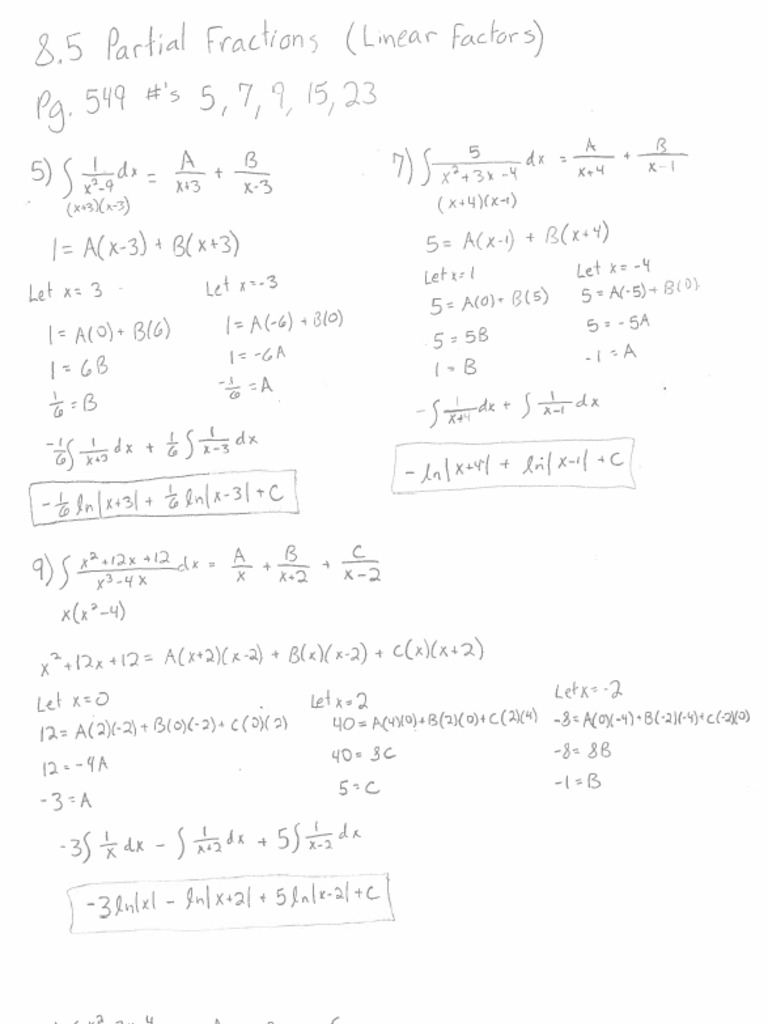 8.5 Partial Fractions (Linear Factors)
Pg. 549 #'s 5, 7, 9, 15, 23
5) ∫ 1/(x²-9) dx = A/(x+3) + B/(x-3)
(x+3)(x-3)
1 = A(x-3) + B(x+3)
Let x = 3
1 = A(0) + B(6)
1 = 6B
1/6 = B
Let x = -3
1 = A(-6) + B(0)
1 = -6A
-1/6 = A
-1/6 ∫ 1/(x+3) dx + 1/6 ∫ 1/(x-3) dx
-1/6 ln|x+3| + 1/6 ln|x-3| + C
7) ∫ 5/(x²+3x-4) dx = A/(x+4) + B/(x-1)
(x+4)(x-1)
5 = A(x-1) + B(x+4)
Let x = 1
5 = A(0) + B(5)
5 = 5B
1 = B
Let x = -4
5 = A(-5) + B(0)
5 = -5A
-1 = A
-∫ 1/(x+4) dx + ∫ 1/(x-1) dx
-ln|x+4| + ln|x-1| + C
9) ∫ (x²+12x+12)/(x³-4x) dx = A/x + B/(x+2) + C/(x-2)
x(x²-4)
x²+12x+12 = A(x+2)(x-2) + B(x)(x-2) + C(x)(x+2)
Let x = 0
12 = A(2)(-2) + B(0)(-2) + C(0)(2)
12 = -4A
-3 = A
Let x = 2
40 = A(4)(0) + B(2)(0) + C(2)(4)
40 = 8C
5 = C
Let x = -2
-8 = A(0)(-4) + B(-2)(-4) + C(-2)(0)
-8 = 8B
-1 = B
-3∫ 1/x dx - ∫ 1/(x+2) dx + 5∫ 1/(x-2) dx
-3 ln|x| - ln|x+2| + 5 ln|x-2| + C